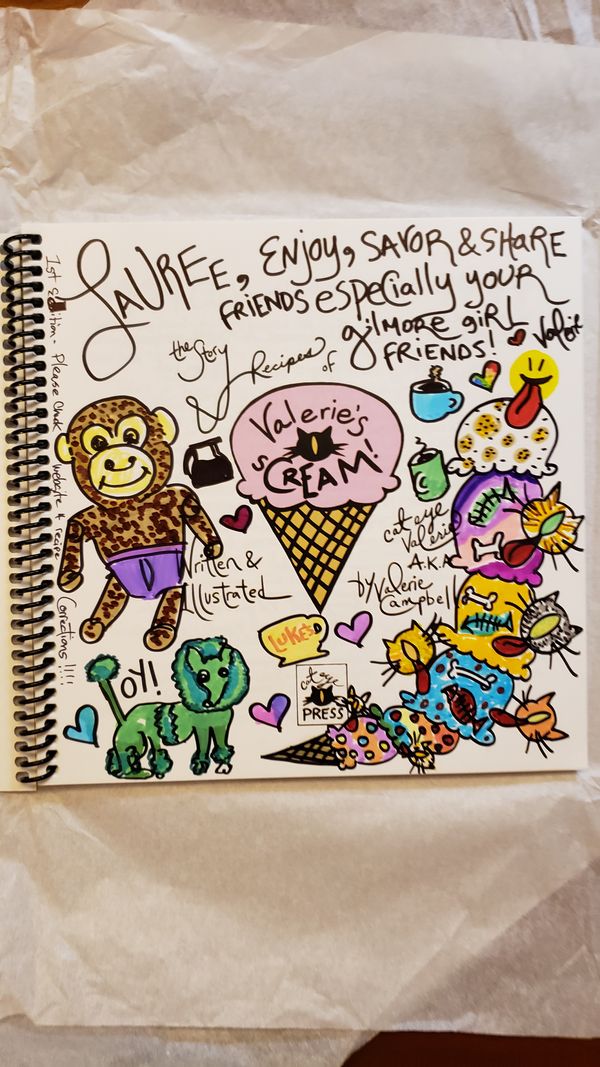 LAUREE, ENJOY, SAVOR & SHARE
FRIENDS especially YOUR
gilmore girl
FRIENDS!
the Story
& Recipes of
Valerie's
SCREAM!
cat eye
Valerie
A.K.A.
by Valerie
Campbell
Written &
Illustrated
LUKE'S
OY!
cat eye
PRESS
Please Check website 4 recipe
Corrections !!!!